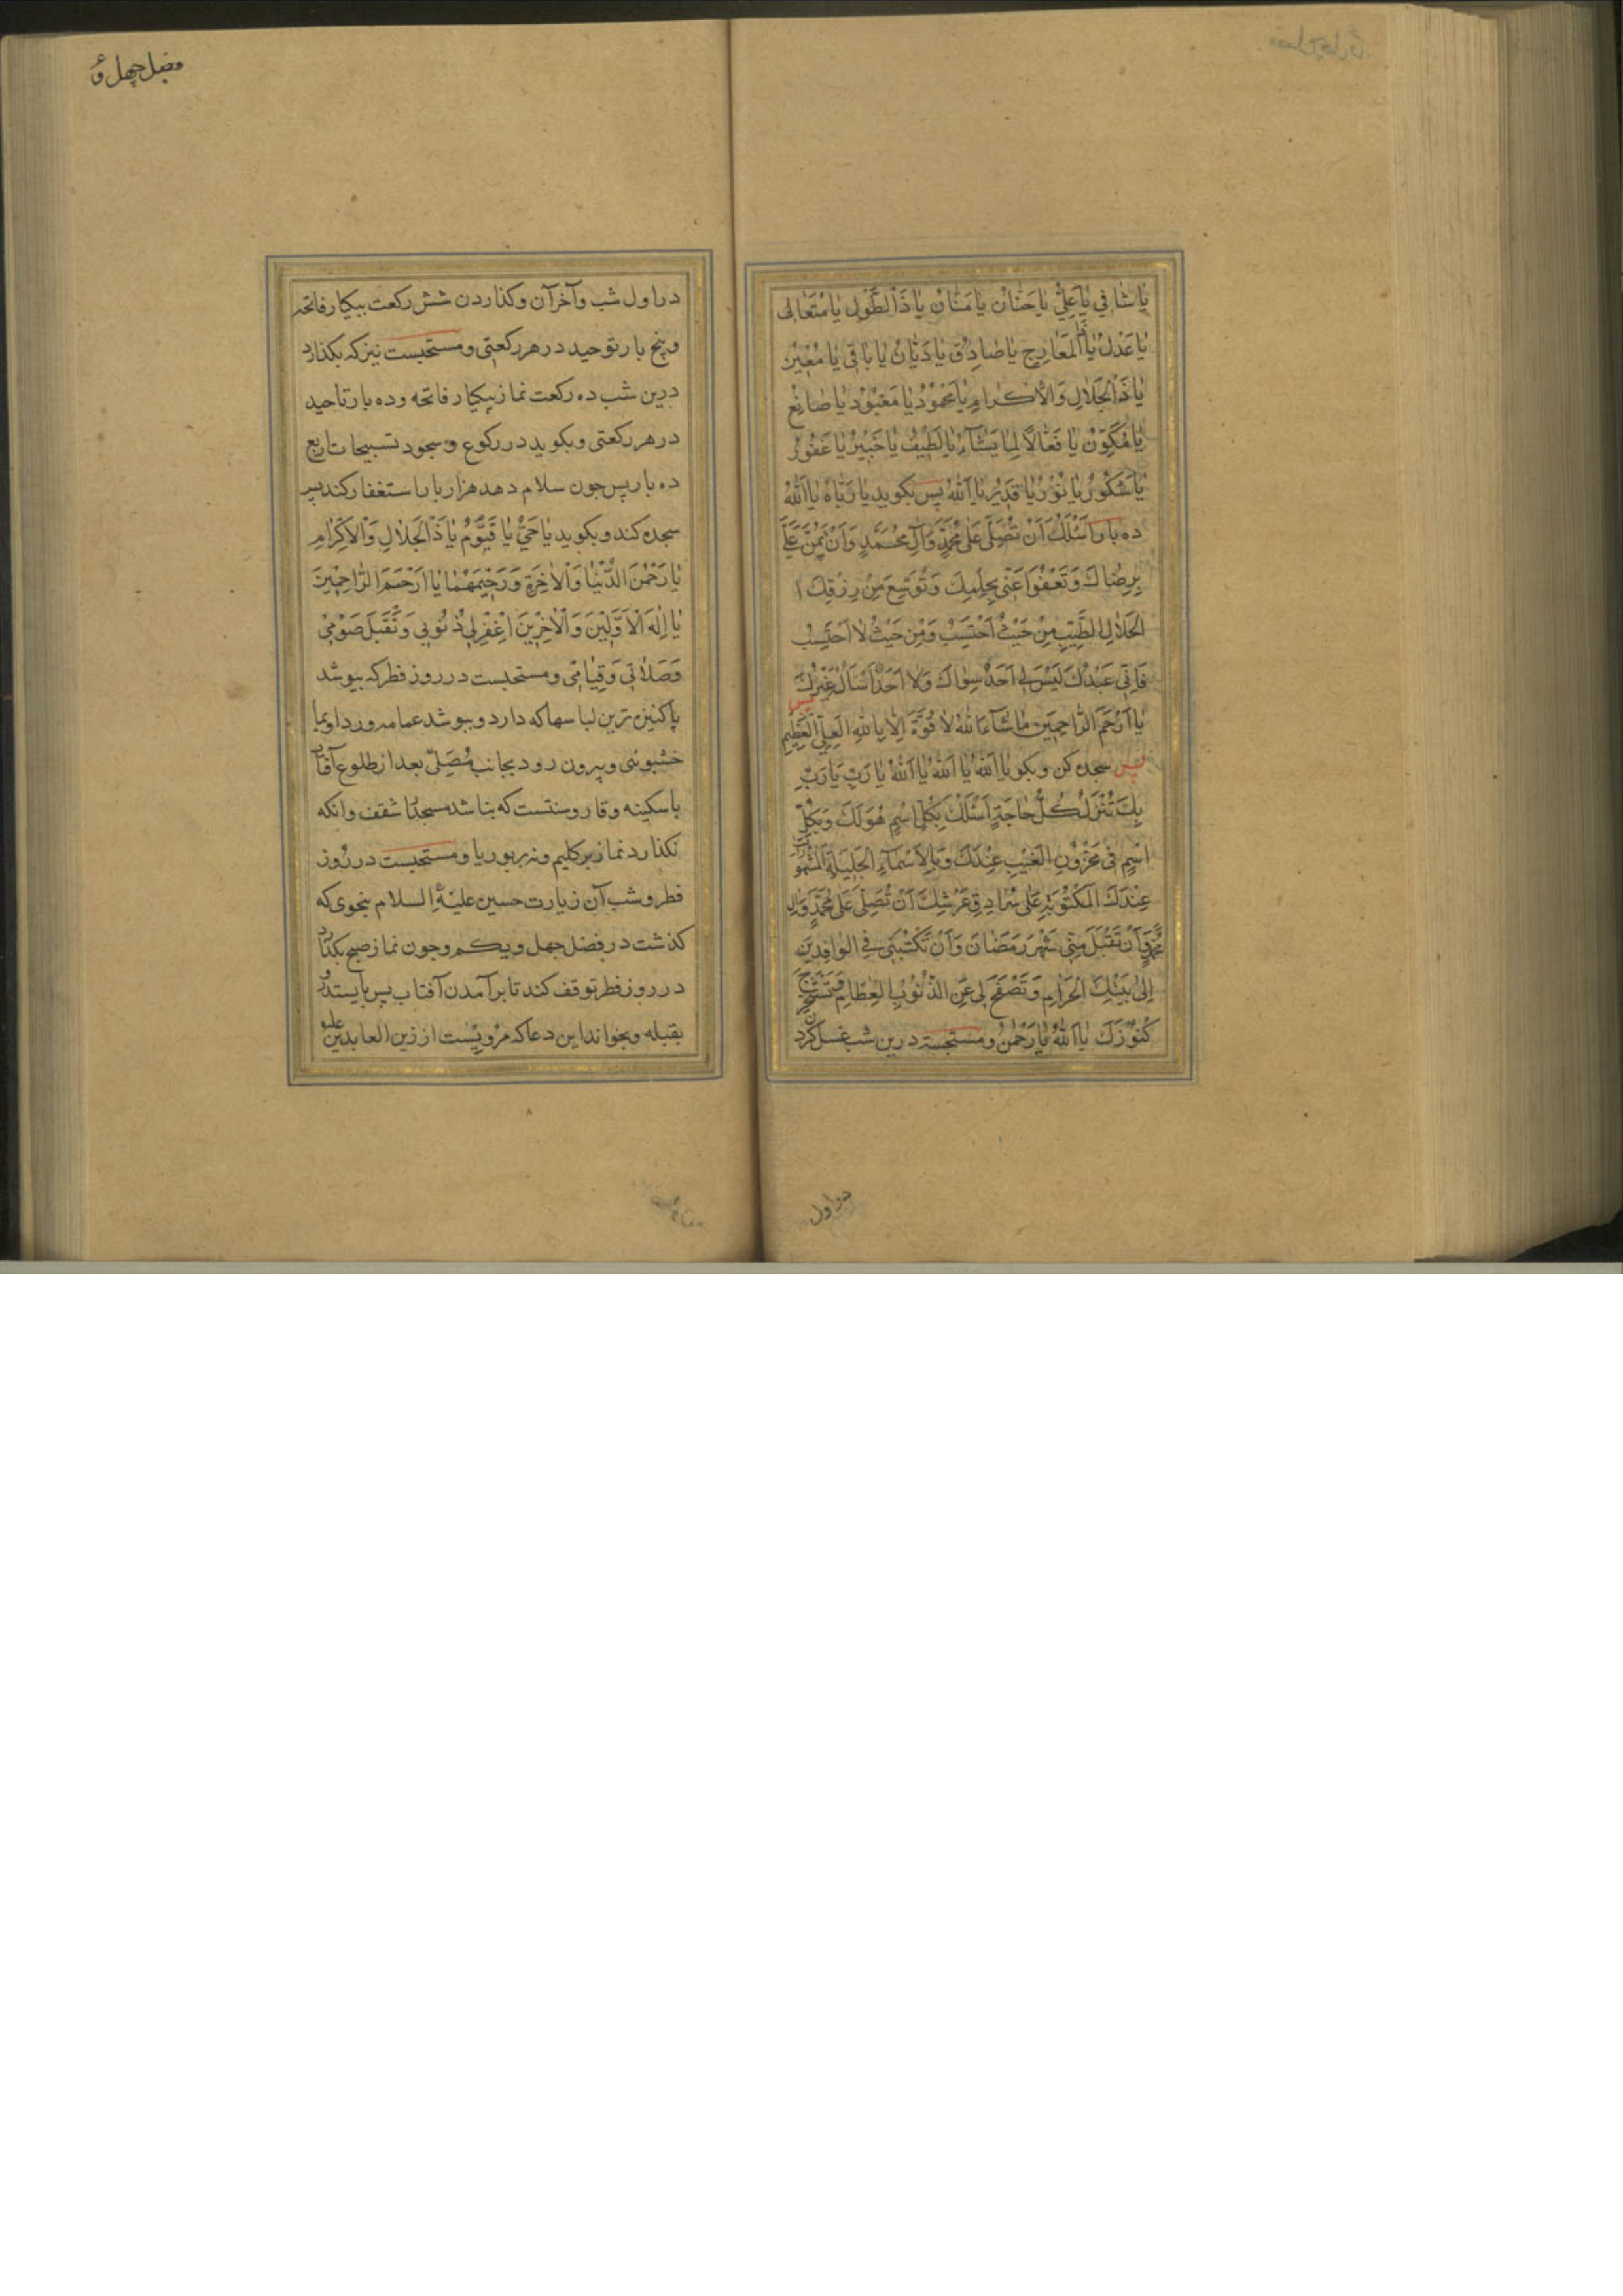 یٰا شٰافِي یٰا عَلِيُّ یٰا حَنّٰانُ یٰا مَنّٰانُ یٰا ذَا الطَّوْلِ یٰا مُتَعٰالِی
یٰا عَدْلُ یٰا ذَا الْمَعٰارِجِ یٰا صٰادِقُ یٰا دَیّٰانُ یٰا بٰاقِي یٰا مُغِیْرُ
یٰا ذَا الْجَلٰالِ وَالْاِکْرٰامِ یٰا مَحْمُوْدُ یٰا مَعْبُوْدُ یٰا صٰانِعُ
یٰا مُکَوِّنُ یٰا فَعّٰالًا لِمٰا یَشٰآءُ یٰا لَطِیْفُ یٰا خَبِیْرُ یٰا غَفُوْرُ
یٰا شَکُوْرُ یٰا نُوْرُ یٰا قَدِیْرُ یٰا اَللّٰهُ پس بکوید یٰا رَبّٰاهُ یٰا اَللّٰهُ
ده بار اَسْئَلُكَ اَنْ تُصَلِّيَ عَلٰی مُحَمَّدٍ وَآلِ مُحَمَّدٍ وَاَنْ تَمُنَّ عَلَيَّ
بِرِضٰاكَ وَتَعْفُوَا عَنّي بِحِلْمِكَ وَتُوَسِّعَ مِنْ رِزْقِكَ ا
الْحَلٰالِ الطَّیِّبِ مِنْ حَیْثُ اَحْتَسِبُ وَمِنْ حَیْثُ لٰا اَحْتَسِبُ
فَاِنّي عَبْدُكَ لَیْسَ لي اَحَدٌ سِوٰاكَ وَلٰا اَحَدٌ اَسْاَلُ غَیْرُكَ
یٰا اَرْحَمَ الرّٰاحِمِینَ مٰا شٰآءَ اللّٰهُ لٰا قُوَّةَ اِلّٰا بِاللّٰهِ الْعَلِيِّ الْعَظِیْمِ پس
پس سجده کن و بکو یٰا اَللّٰهُ یٰا اَللّٰهُ یٰا اَللّٰهُ یٰا رَبِّ یٰا رَبِّ
بِكَ تُنْزَلُ کُلُّ حٰاجَةٍ اَسْئَلُكَ بِکُلِّ اِسْمٍ هُوَ لَكَ وَبِکُلِّ
اسْمٍ فِي مَخْزُوْنِ الْغَیْبِ عِنْدَكَ وَبِالْاَسْمٰآءِ الْجَلِیْلَةِ الْمَشْهُورٰاتِ
عِنْدَكَ الْمَکْتُوْبَةِ عَلٰی سُرٰادِقِ عَرْشِكَ اَنْ تُصَلِّيَ عَلٰی مُحَمَّدٍ وَاٰلِ
مُحَمَّدٍ وَاَنْ تَقْبَلَ مِنّي شَهْرَ رَمَضٰانَ وَاَنْ تَکْتُبَنِي فِي الْوٰافِدِیْنَ
اِلٰی بَیْتِكَ الْحَرٰامِ وَتَصْفَحَ لي عَنِ الذُّنُوْبِ الْعِظٰامِ وَتَسْتَخْرِجَ
کُنُوْزَكَ یٰا اَللّٰهُ یٰا رَحْمٰنُ و مستحبست درین شب غسل کردن
در اول
فصل چهل و
در اول شب و آخر آن و کذاردن شش رکعت بیکبار فاتحه
و پنج بار توحید در هر رکعتی و مستحبست نیز که بکذارد
درین شب ده رکعت نماز بیکبار فاتحه و ده بار تاحید
در هر رکعتی و بکوید در رکوع و سجود تسبیحات اربع
ده بار پس جون سلام دهد هزار بار استغفار کند پس
سجده کند و بکوید یٰا حَيُّ یٰا قَیُّوْمُ یٰا ذَا الْجَلٰالِ وَالْاِکْرٰامِ
یٰا رَحْمٰنَ الدُّنْیٰا وَالْاٰخِرَةِ وَرَحِیْمَهُمٰا یٰا اَرْحَمَ الرّٰاحِمِیْنَ
یٰا اِلٰهَ الْاَوَّلِیْنَ وَالْاٰخِرِیْنَ اغْفِرْ لِي ذُنُوْبِي وَتَقَبَّلْ صَوْمِي
وَصَلٰاتِي وَقِیٰامِي و مستحبست در روز فطر که بپوشد
پاکیزه ترین لباسها که دارد و بپوشد عمامه و ردا و بما
خشبوئی و بیرون رود بجانب مُصَلّیٰ بعد از طلوع آفتاب
با سکینه و قار و سنتست که نباشد مسجدٌ اشقف و انکه
نکذارد نماز بر کلیم و نه بر بوریا و مستحبست در روز
فطر و شب آن زیارت حسین علیه السلام بنحوی که
کذشت در فصل جهل و یکم و جون نماز صبح بکذارد
در روز فطر توقف کند تا بر آمدن آفتاب پس بایستد رو
بقبله و بخواند این دعا که مرویست از زین العابدین علیه